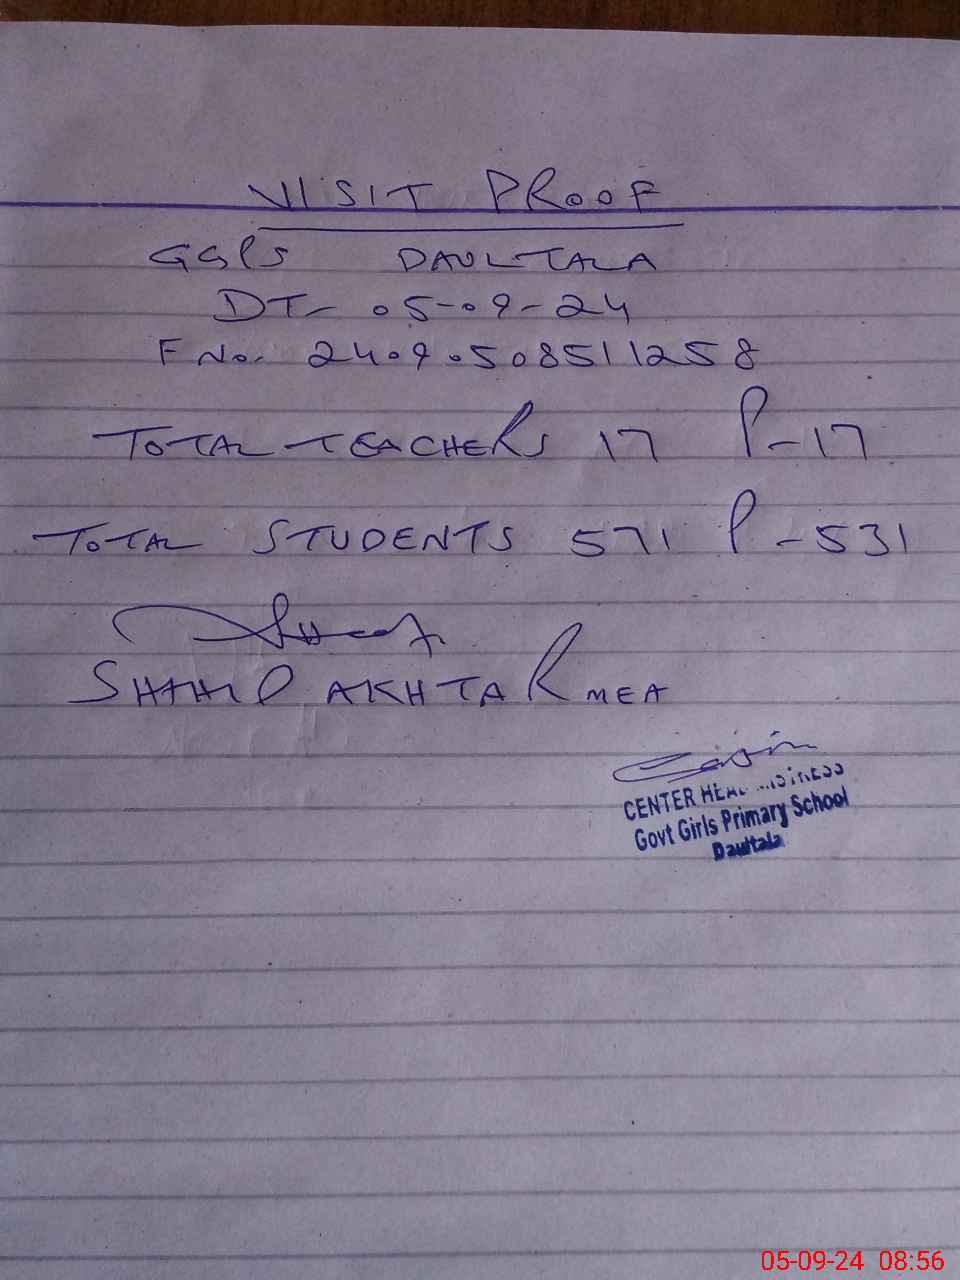 VISIT PROOF
GGPS DAULTALA
DT- 05-09-24
F No. 2409.508511258
TOTAL TEACHERS 17 P-17
TOTAL STUDENTS 571 P-531
SHAHID AKHTAR MEA
CENTER HEAD MISTRESS
Govt Girls Primary School
Daultala
05-09-24 08:56